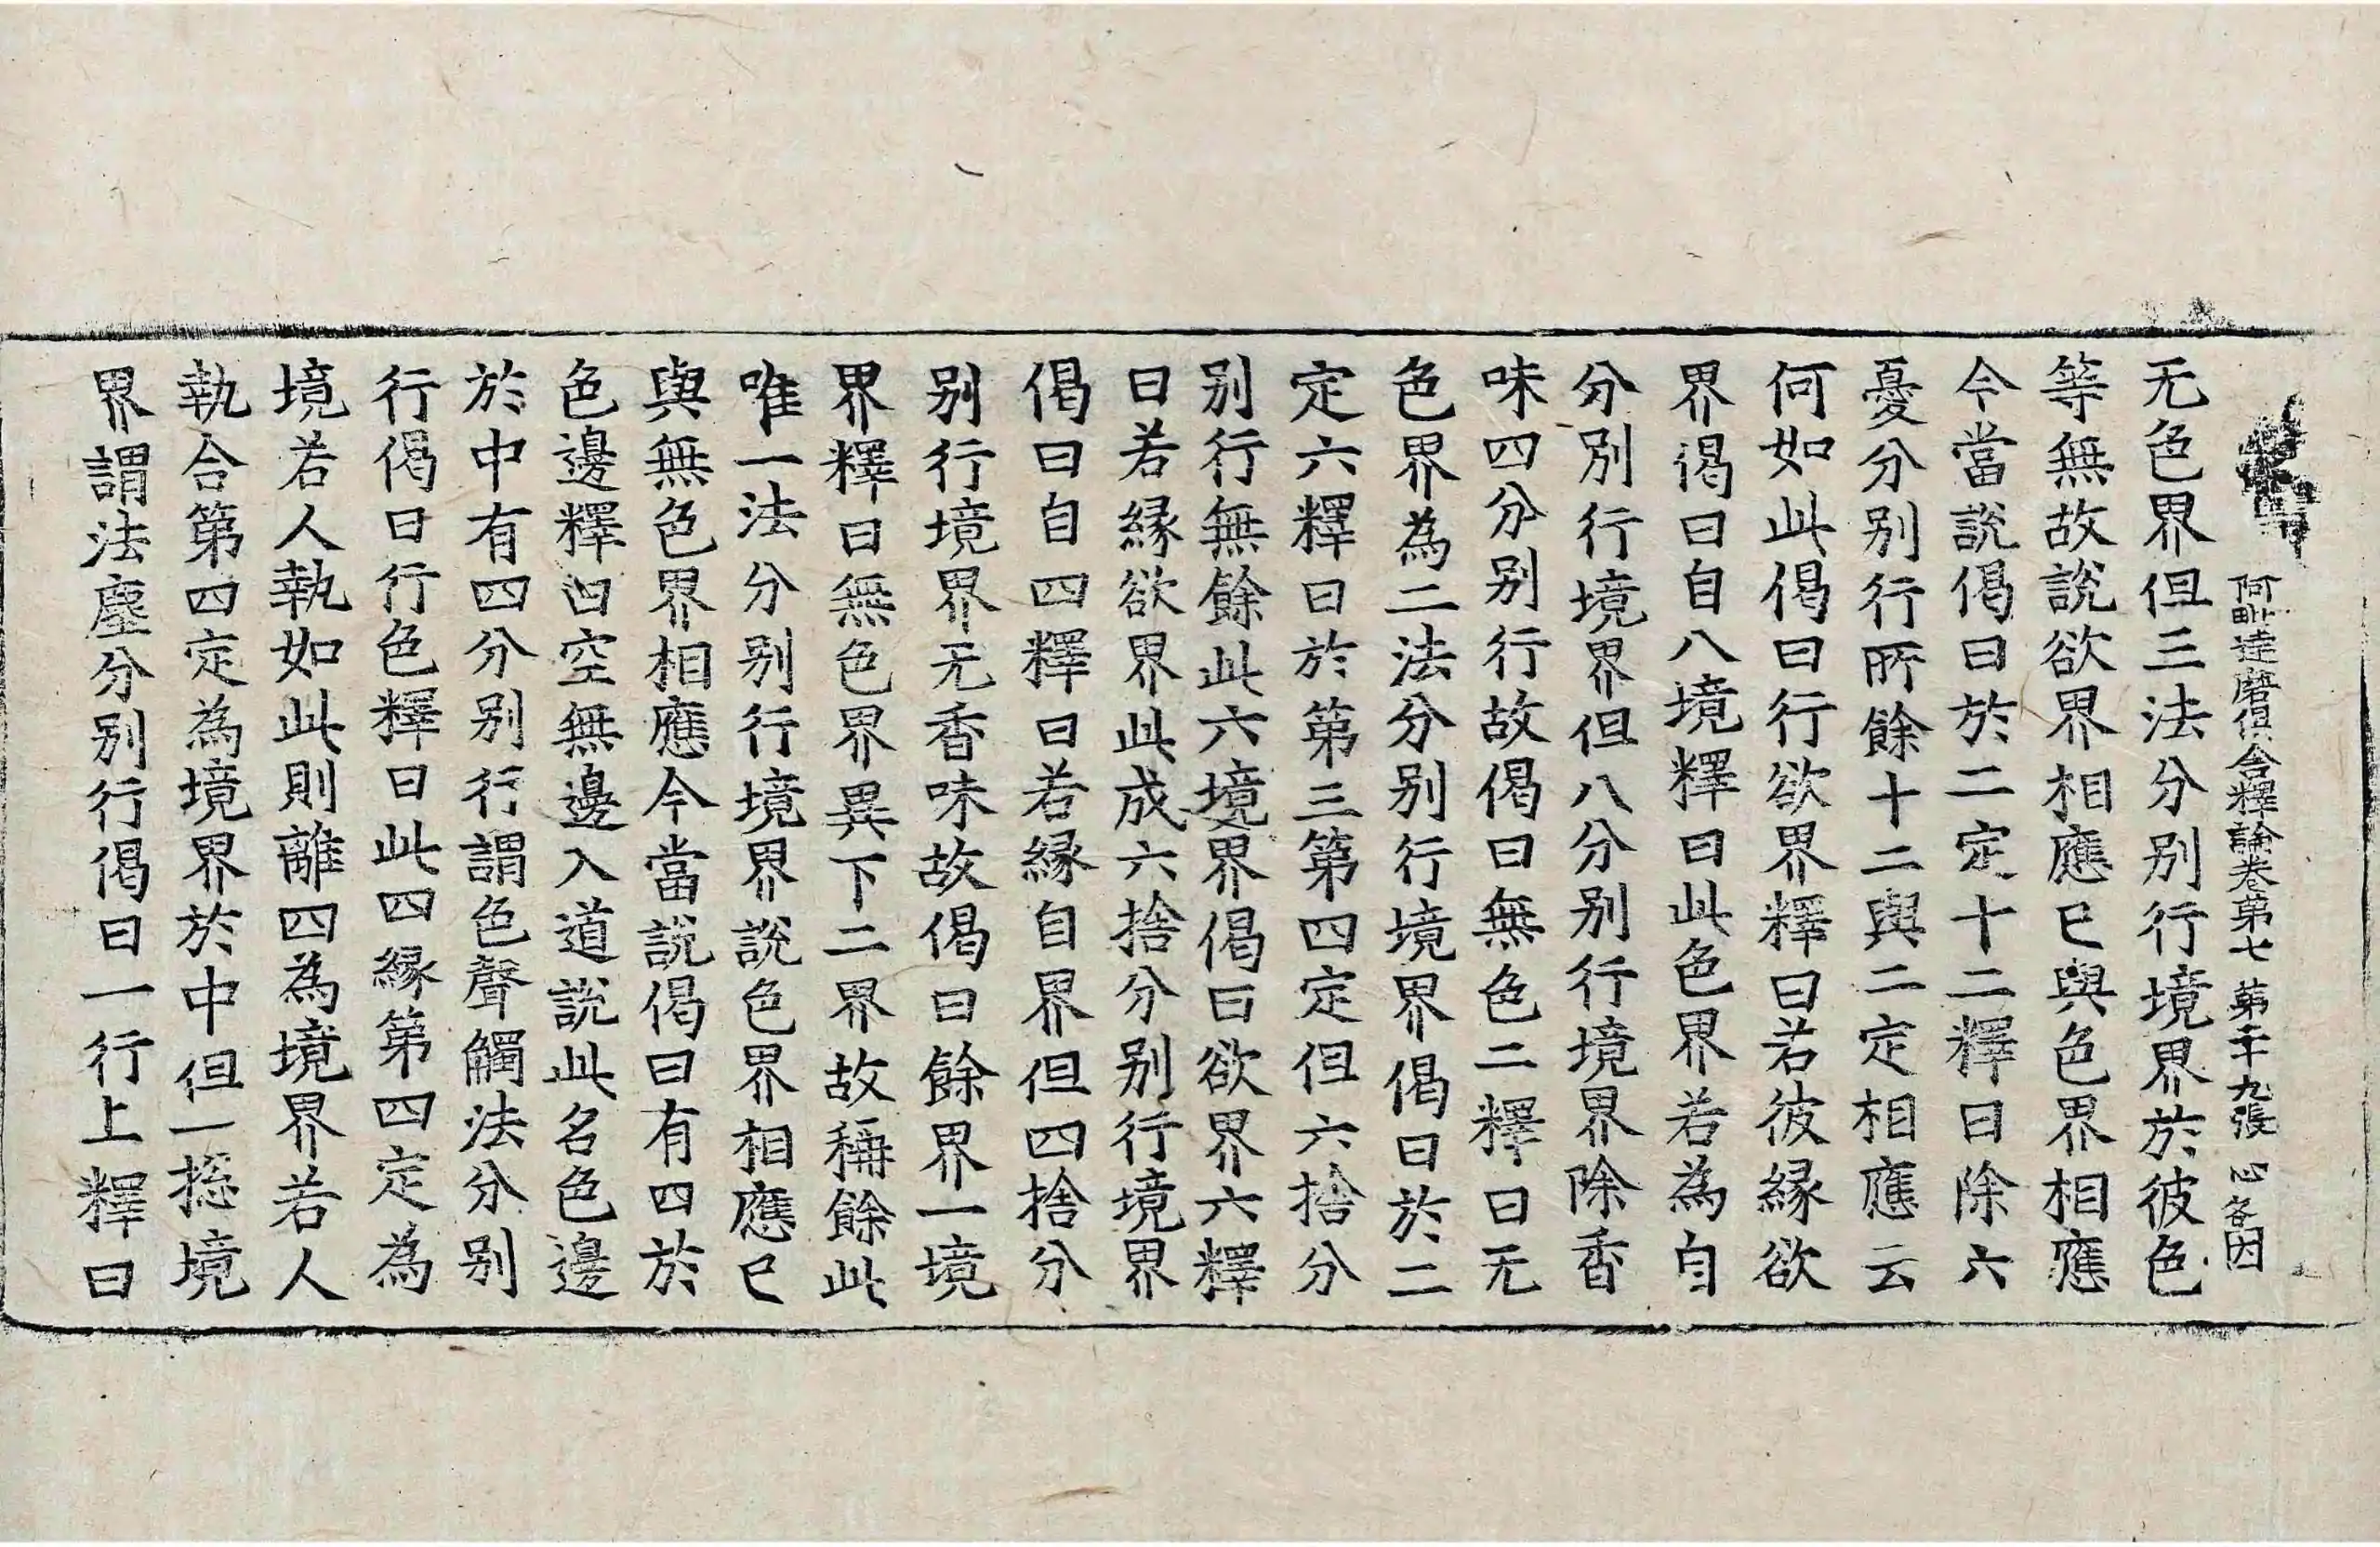 阿毗達磨俱舍釋論卷第七 第二十九張 心 各因
无色界但三法分別行境界於彼色
等無故說欲界相應已與色界相應
今當說偈曰於二定十二釋曰除六
憂分別行所餘十二與二定相應云
何如此偈曰行欲界釋曰若彼緣欲
界偈曰自八境釋曰此色界若為自
分別行境界但八分別行境界除香
味四分別行故偈曰無色二釋曰无
色界為二法分別行境界偈曰於二
定六釋曰於第三第四定但六捨分
別行無餘此六境界偈曰欲界六釋
曰若緣欲界此成六捨分別行境界
偈曰自四釋曰若緣自界但四捨分
別行境界无香味故偈曰餘界一境
界釋曰無色界異下二界故稱餘此
唯一法分別行境界說色界相應已
與無色界相應今當說偈曰有四於
色邊釋曰空無邊入道說此名色邊
於中有四分別行謂色聲觸法分別
行偈曰行色釋曰此四緣第四定為
境若人執如此則離四為境界若人
執合第四定為境界於中但一揔境
界謂法塵分別行偈曰一行上釋曰